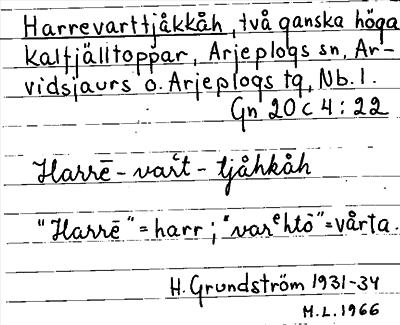 Harrevarttjåkkåh, två ganska höga
kalfjälltoppar, Arjeplogs sn, Ar-
vidsjaurs o. Arjeplogs tg, Nb. l.
Gn 20 c 4 : 22
Harrē - vart - tjåhkåh
"Harrē" = harr ; "varᵉhtō" = vårta.
H. Grundström 1931-34
M.L. 1966